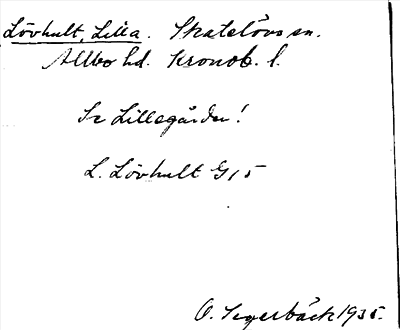 Lövhult, Lilla. Skatelövs sn.
Allbo hd. Kronob. l.
Se Lillegården!
L. Lövhult G15
O. Segerbäck 1935.